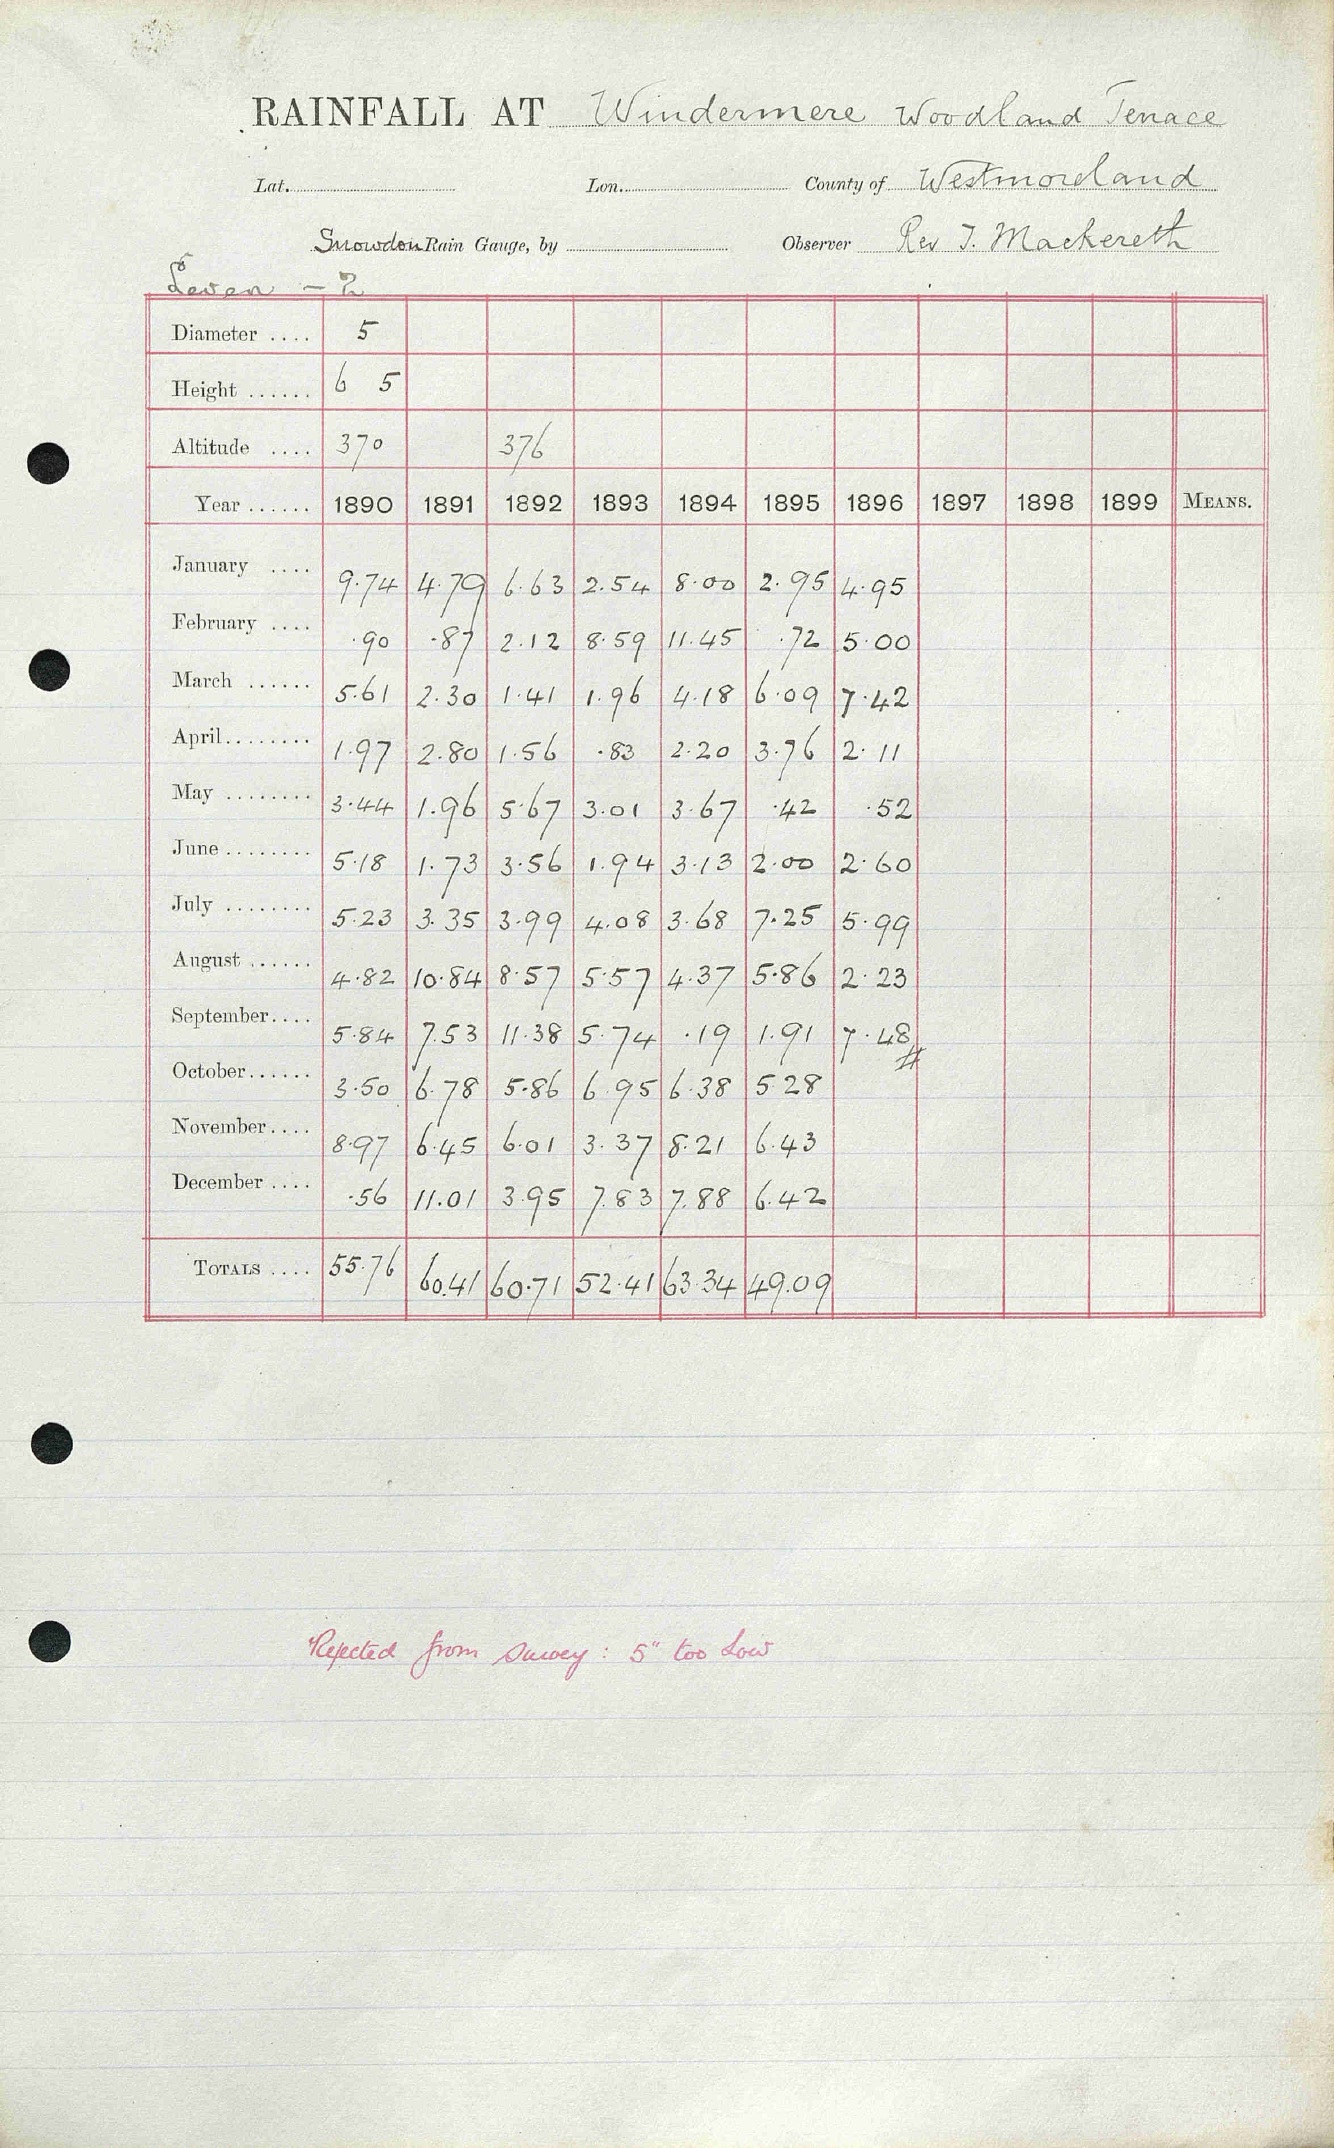 RAINFALL AT Windermere Woodland Terrace
Lat. Lon. County of Westmoreland
Snowdon Rain Gauge, by Observer Rev T. Mackereth
Leven - 2
Diameter .... 5
Height ...... 6 5
Altitude .... 370 376
Year ...... 1890 1891 1892 1893 1894 1895 1896 1897 1898 1899 MEANS.
January .... 9.74 4.79 6.63 2.54 8.00 2.95 4.95
February .... .90 .87 2.12 8.59 11.45 .72 5.00
March ...... 5.61 2.30 1.41 1.96 4.18 6.09 7.42
April ........ 1.97 2.80 1.56 .83 2.20 3.76 2.11
May ........ 3.44 1.96 5.67 3.01 3.67 .42 .52
June ........ 5.18 1.73 3.56 1.94 3.13 2.00 2.60
July ........ 5.23 3.35 3.99 4.08 3.68 7.25 5.99
August ...... 4.82 10.84 8.57 5.57 4.37 5.86 2.23
September .... 5.84 7.53 11.38 5.74 .19 1.91 7.48
October ...... 3.50 6.78 5.86 6.95 6.38 5.28
November .... 8.97 6.45 6.01 3.37 8.21 6.43
December .... .56 11.01 3.95 7.83 7.88 6.42
TOTALS .... 55.76 60.41 60.71 52.41 63.34 49.09
Rejected from survey : 5" too low